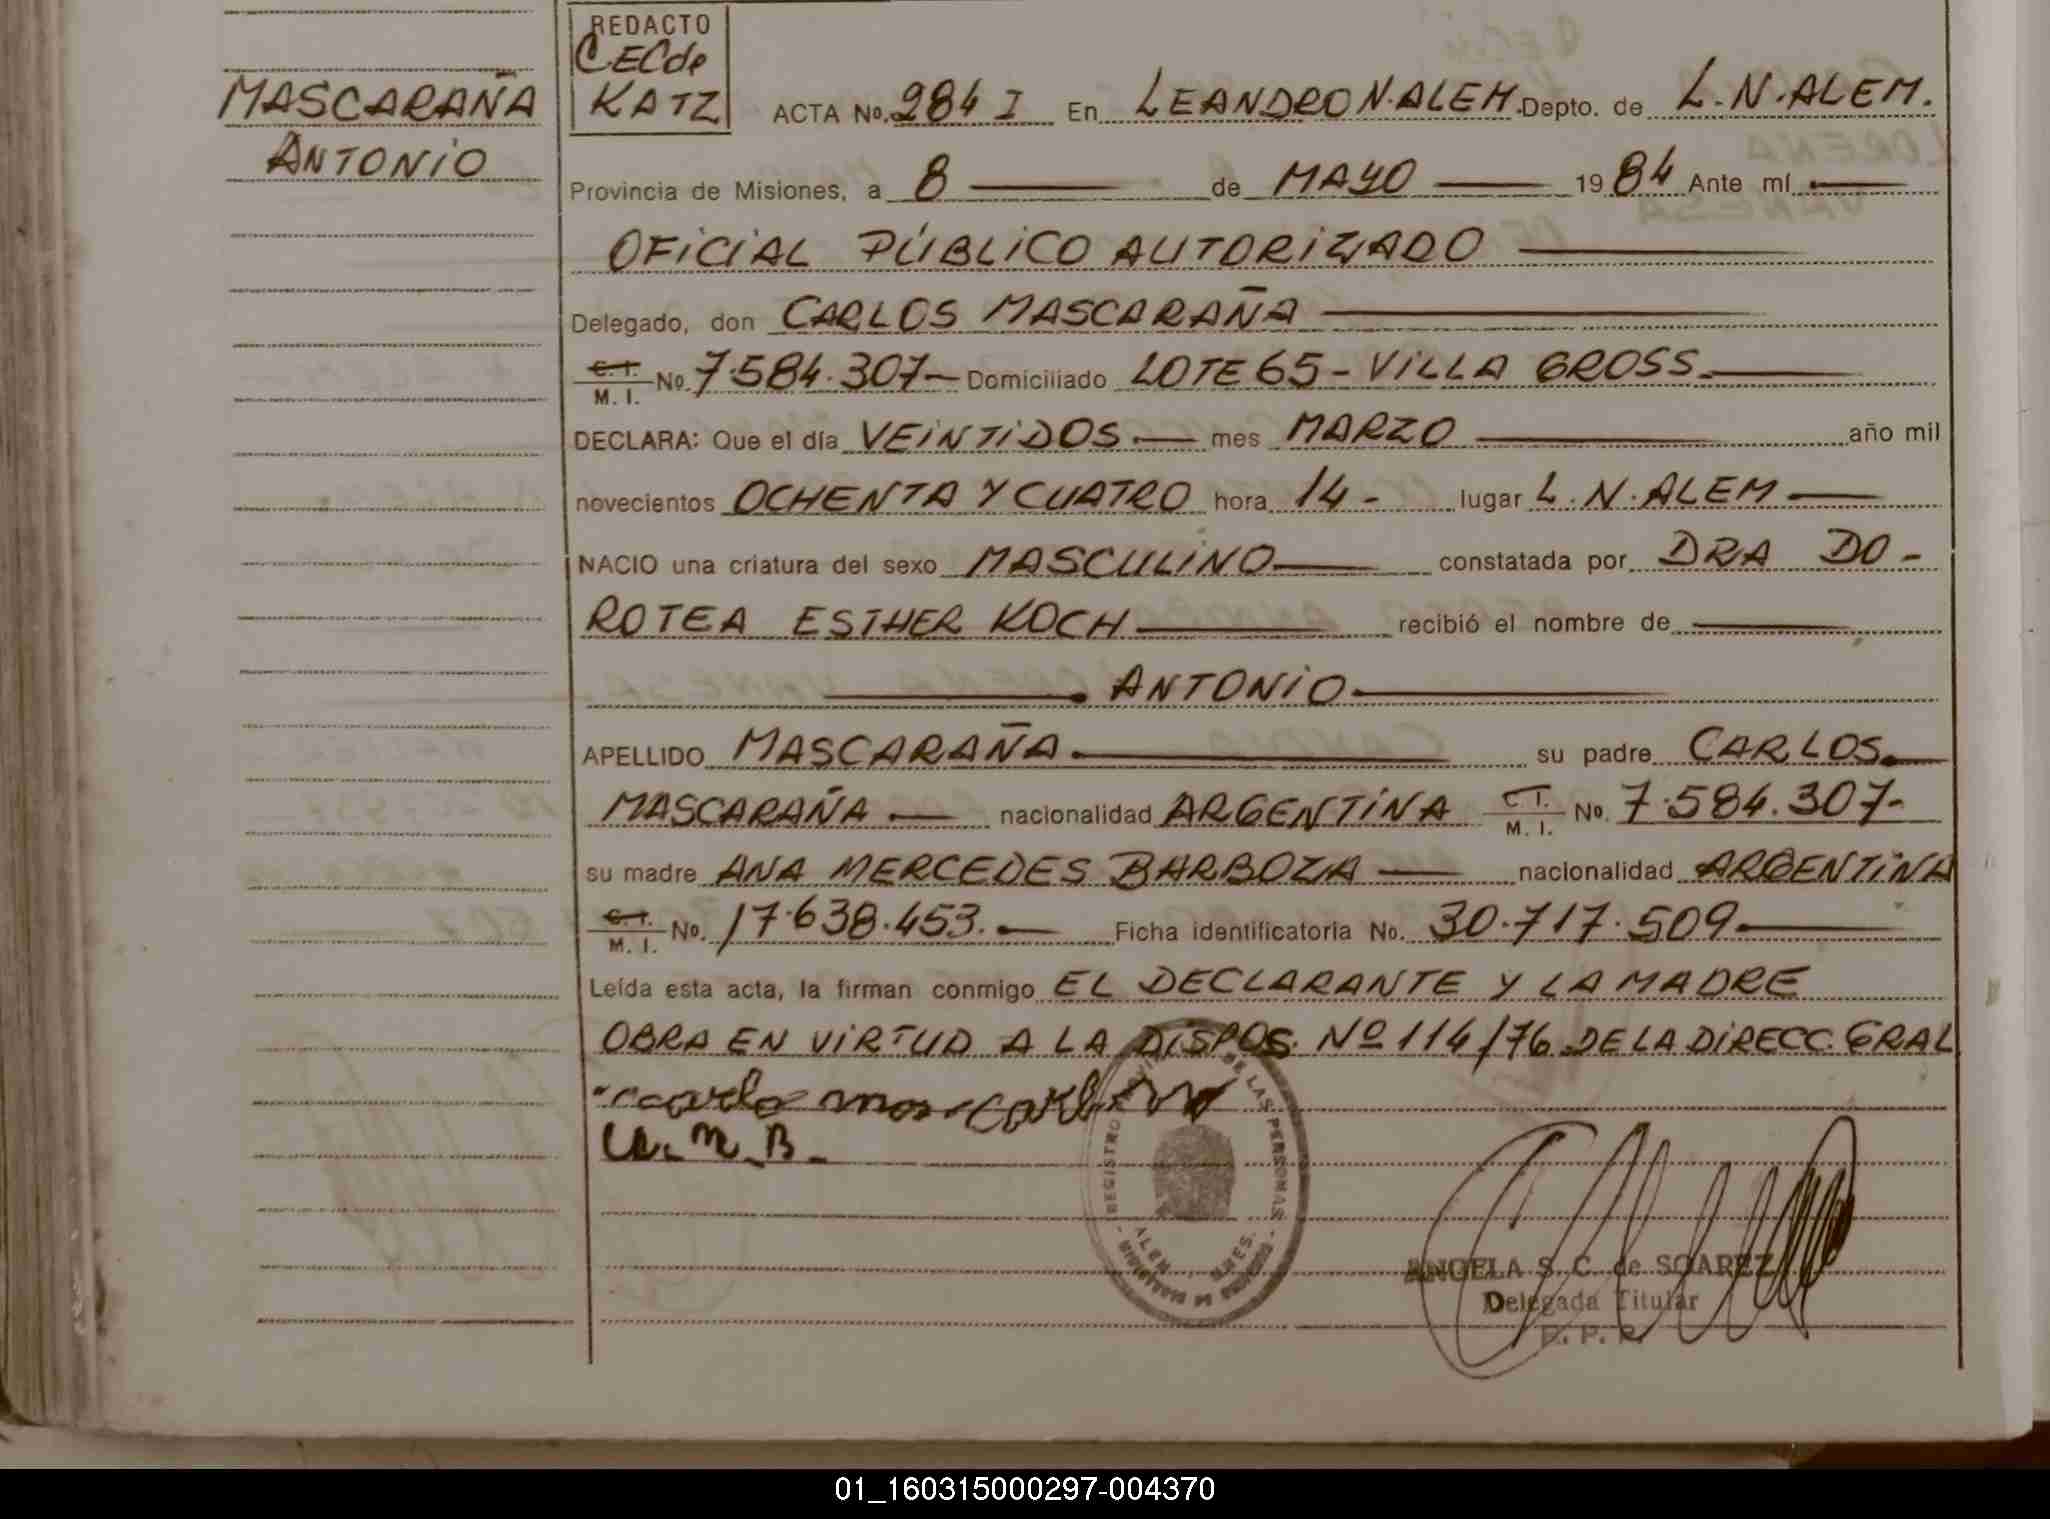 REDACTO
CECde
KATZ
MASCARAÑA
ANTONIO
ACTA No. 284 I En LEANDRO N. ALEM. Depto. de L.N.ALEM.
Provincia de Misiones, a 8 de MAYO 1984 Ante mí
OFICIAL PÚBLICO AUTORIZADO
Delegado, don CARLOS MASCARAÑA
C.I. M.I. No. 7.584.307- Domiciliado LOTE 65 - VILLA GROSS.
DECLARA: Que el día VEINTIDOS.- mes MARZO año mil
novecientos OCHENTA Y CUATRO hora 14- lugar L.N.ALEM
NACIO una criatura del sexo MASCULINO constatada por DRA DO-
ROTEA ESTHER KOCH recibió el nombre de
ANTONIO
APELLIDO MASCARAÑA. su padre CARLOS
MASCARAÑA nacionalidad ARGENTINA C.I. M.I. No. 7.584.307-
su madre ANA MERCEDES BARBOZA nacionalidad ARGENTINA
C.I. M.I. No. 17.638.453.- Ficha identificatoria No. 30.717.509
Leída esta acta, la firman conmigo EL DECLARANTE Y LA MADRE
OBRA EN VIRTUD A LA DISPOS. Nº 114/76 DE LA DIRECC. GRAL
A. M. B.
REGISTRO DE LAS PERSONAS
ALEM MNES.
ANGELA S. C. de SOAREZ
Delegada Titular
01_160315000297-004370